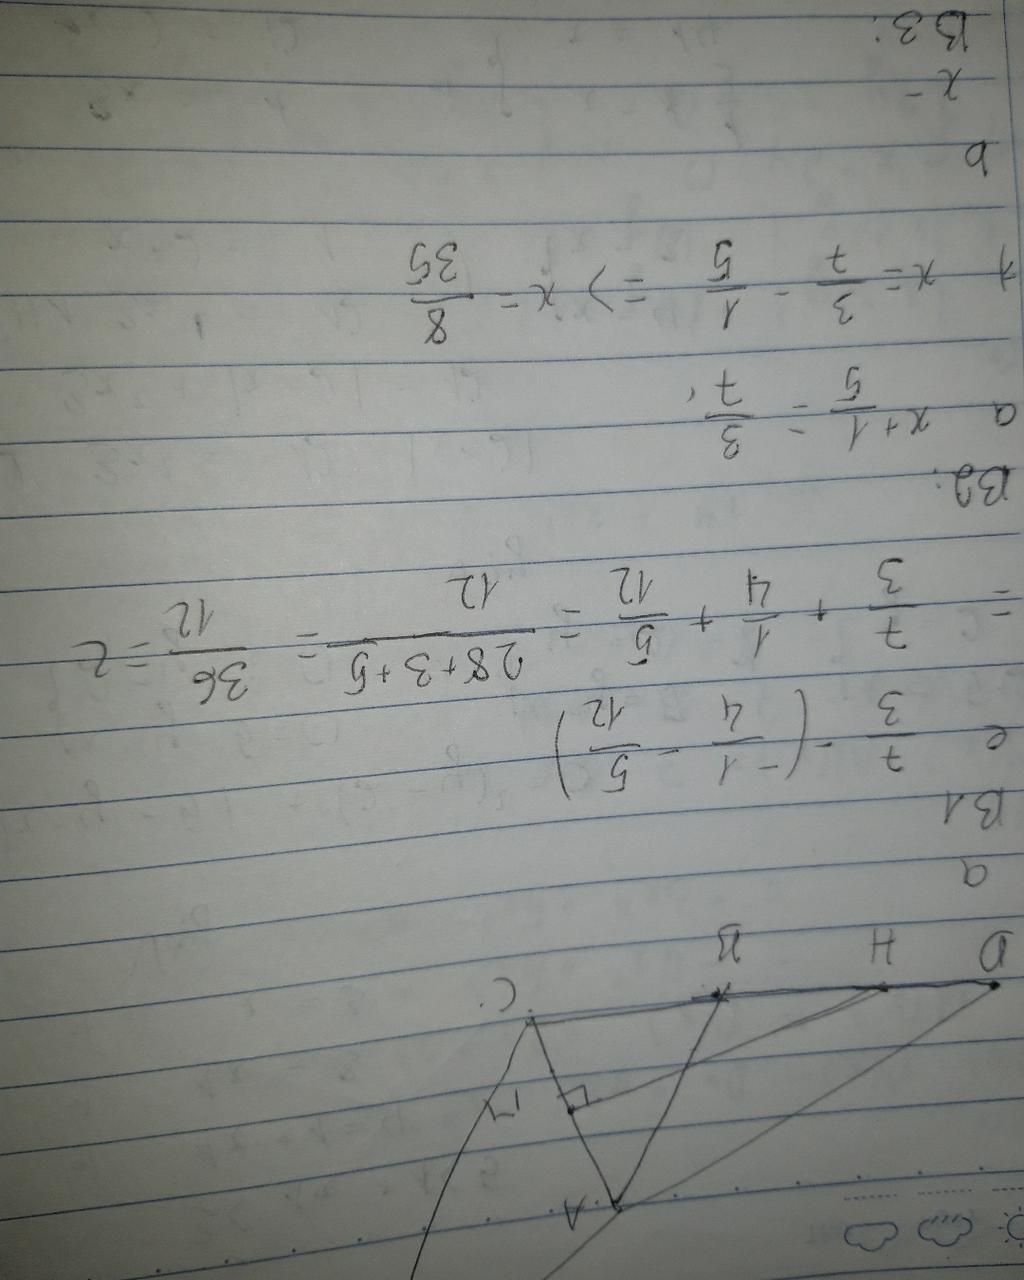 A
D H B C
a
B1
e 7/3 - (-1/4 - 5/12)
= 7/3 + 1/4 + 5/12 = (28+3+5)/12 = 36/12 = 2
B2:
a x + 1/5 = 3/7
x = 3/7 - 1/5 => x = 8/35
b
x -
B3: